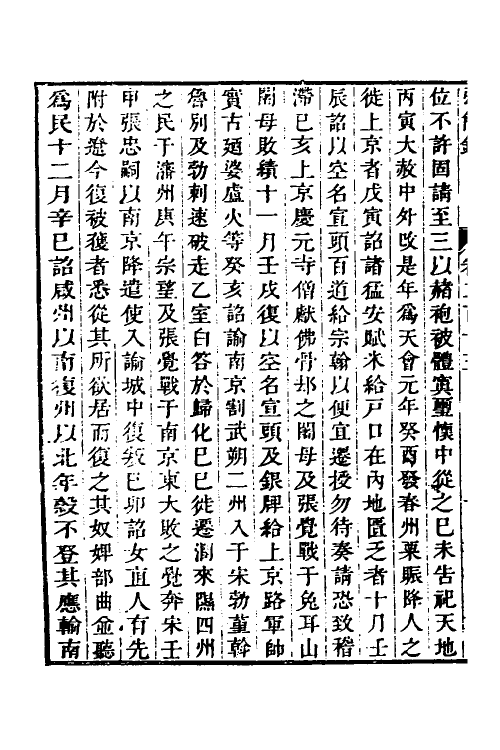 位不許固請至三以赭袍被體寘璽懷中從之己未告祀天地
丙寅大赦中外改是年爲天會元年癸酉發春州粟賑降人之
徙上京者戊寅詔諸猛安賦米給戸口在內地匱乏者十月壬
辰詔以空名宣頭百道給宗翰以便宜遷授勿待奏請恐致稽
滯己亥上京慶元寺僧獻佛骨却之闍母及張覺戰于兔耳山
闍母敗績十一月壬戌復以空名宣頭及銀牌給上京路軍帥
實古迺婆盧火等癸亥詔諭南京割武朔二州入于宋勃菫斡
魯別及勃剌速破走乙室白答於歸化己巳徙遷潤來隰四州
之民于瀋州庚午宗望及張覺戰于南京東大敗之覺奔宋壬
申張忠嗣以南京降遣使入諭城中復叛己卯詔女直人有先
附於遼今復被獲者悉從其所欲居而復之其奴婢部曲僉聽
爲民十二月辛巳詔咸州以南復州以北年穀不登其應輸南